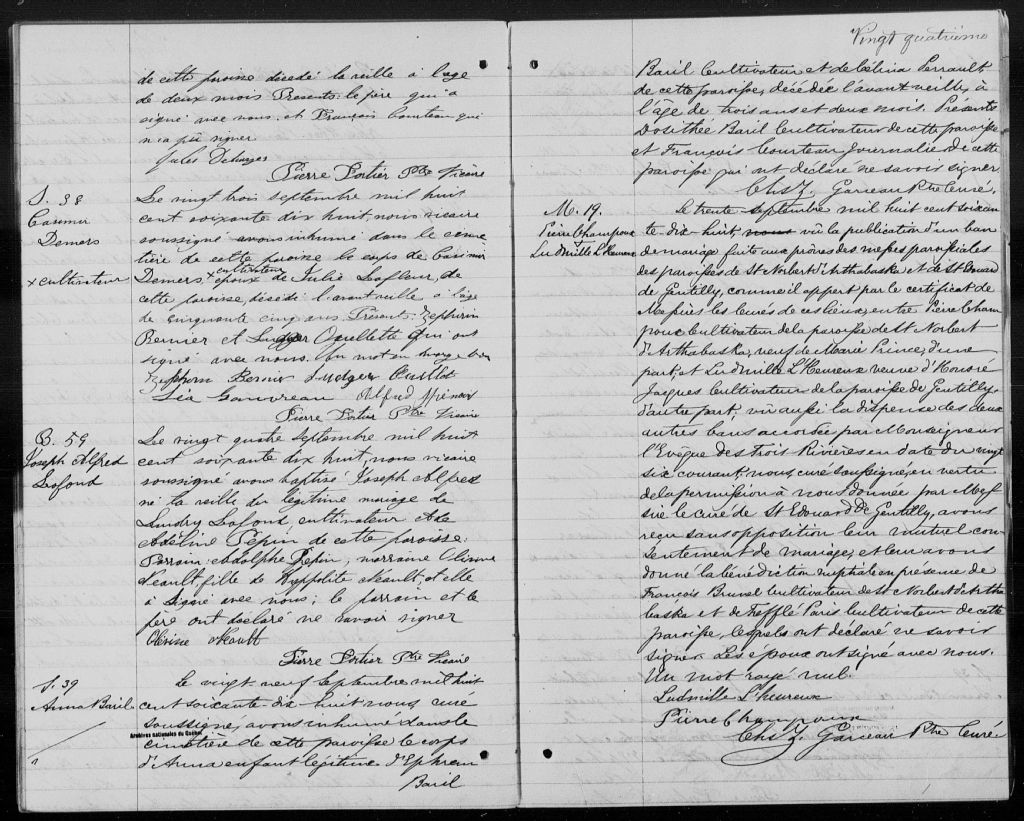 de cette paroisse décédé la veille à l'age
de deux mois Présents: le père qui a
signé avec nous et François Courteau qui
n'a pu signer
Jules Deharges
Pierre Portier Ptre Vicaire
S. 38
Casimir
Demers
x cultivateur
Le vingt trois septembre mil huit
cent soixante dix huit, nous vicaire
soussigné avons inhumé dans le cime
tière de cette paroisse le corps de Casimir
Demers x cultivateur époux de Julie Lafleur, de
cette paroisse, décédé l'avant veille à l'âge
de cinquante cinq ans. Présent: Zephirin
Bernier et Ludger Ouellette qui ont
signé avec nous. Un mot en marge bon
Zephirin Bernier Ludger Ouillet
Léa Gauvreau Alfred
Pierre Portier Ptre Vicaire
B. 59
Joseph Alfred
Lafond
Le vingt quatre Septembre mil huit
cent soixante dix huit, nous vicaire
soussigné avons baptisé Joseph Alfred
né la veille du légitime mariage de
Lafond, cultivateur et de
Adéline Pepin de cette paroisse:
Parrain: Adolphe Pepin, marraine Olérine
Neault, fille de Hyppolite Neault, et elle
à signé avec nous; le parrain et le
père ont déclaré ne savoir signer
Olérine Neault
Pierre Portier Ptre Vicaire
S. 39
Anna Baril
Le vingt-neuf Septembre mil huit
cent soixante dix-huit nous curé
soussigné, avons inhumé dans le
Archives nationales du Québec
cimetière de cette paroisse le corps
d'Anna enfant légitime d'Ephrem
Baril
Vingt quatrième
Baril Cultivateur et de Célina Perrault
de cette paroisse, décédée l'avant veille, à
l'âge de trois ans et deux mois. Présents
Dosithée Baril Cultivateur de cette paroisse
et François Courteau Journalier de cette
paroisse qui ont déclaré ne savoir signer
Chs Z. Garceau Ptre Curé.
M. 19.
Pierre Champoux
+
Ludmille L'Heureux
Le trente Septembre mil huit cent soixan
te dix-huit, nous vû la publication d'un ban
de mariage faite aux prônes des messes paroissiales
des paroisses de St Norbert d'Arthabaska et de St Edouard
de Gentilly, comme il appert par le certificat de
Messires les Curés de ces lieux, entre Pierre Cham
poux Cultivateur de la paroisse de St Norbert
d'Arthabaska, veuf de Marie Prince, d'une
part, et Ludmille L'Heureux veuve d'Honoré
Jacques Cultivateur de la paroisse de Gentilly
d'autre part, vû aussi la dispense des deux
autres bans accordée par Monseigneur
l'Evêque des trois Rivières en date du vingt
six courant, nous, curé soussigné, en vertu
de la permission à nous donnée par Mes
sire le curé de St Edouard de Gentilly, avons
reçu sans opposition leur mutuel con
sentement de mariage, et leur avons
donné la bénédiction nuptiale en présence de
François Brunel Cultivateur de St Norbert d'Artha
baska et de Trefflé Paris Cultivateur de cette
paroisse, lesquels ont déclaré ne savoir
signer. Les époux ont signé avec nous.
Un mot rayé nul.
Ludmille L'heureux
Pierre Champoux
Chs Z. Garceau Ptre Curé